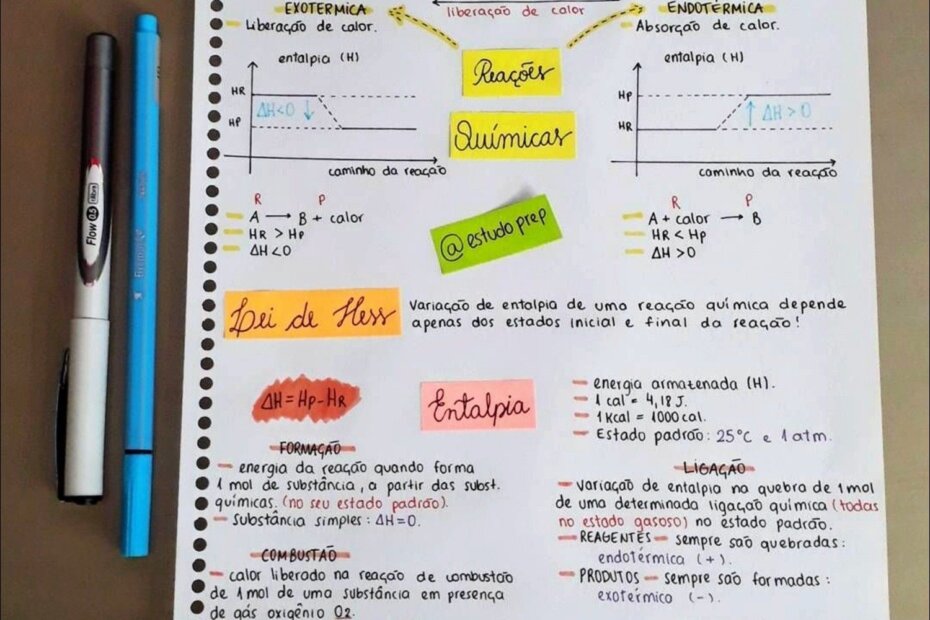 EXOTÉRMICA
Liberação de calor.
liberação de calor
ENDOTÉRMICA
Absorção de calor.
Reações
Químicas
entalpia (H)
HR
HP
ΔH<0 ↓
caminho da reação
entalpia (H)
HP
HR
↑ ΔH>0
caminho da reação
R P
A → B + calor
HR > HP
ΔH<0
@estudoprep
R P
A + calor → B
HR < HP
ΔH>0
Lei de Hess
Variação de entalpia de uma reação química depende
apenas dos estados inicial e final da reação!
ΔH = HP - HR
Entalpia
energia armazenada (H).
1 cal = 4,18 J.
1 Kcal = 1000 cal.
Estado padrão: 25°C e 1 atm.
FORMAÇÃO
energia da reação quando forma
1 mol de substância, a partir das subst.
químicas. (no seu estado padrão).
Substância simples: ΔH=0.
COMBUSTÃO
calor liberado na reação de combustão
de 1 mol de uma substância em presença
de gás oxigênio O2.
LIGAÇÃO
variação de entalpia na quebra de 1 mol
de uma determinada ligação química (todas
no estado gasoso) no estado padrão.
REAGENTES - sempre são quebradas:
endotérmica (+).
PRODUTOS - sempre são formadas:
exotérmico (-).
Flow 0.5